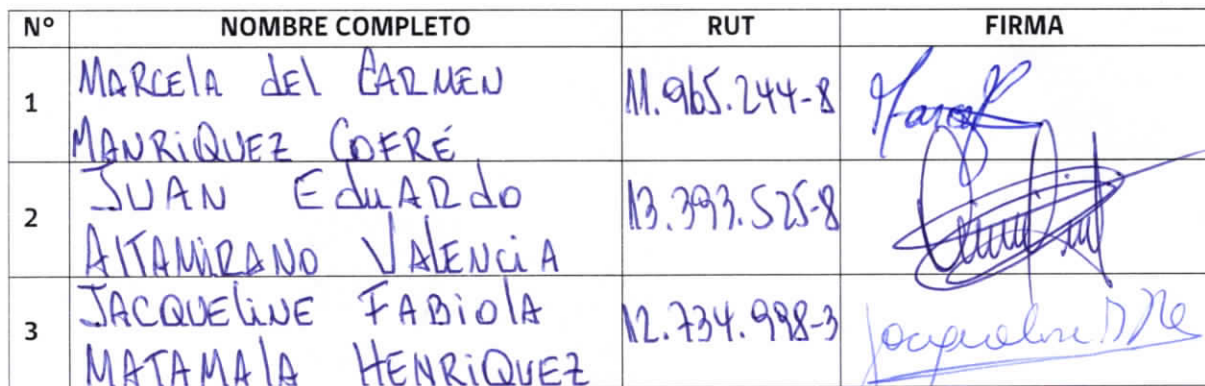 N° NOMBRE COMPLETO RUT FIRMA
1 MARCELA DEL CARMEN
MANRIQUEZ COFRÉ 11.965.244-8
2 JUAN EDUARDO
ALTAMIRANO VALENCIA 13.393.525-8
3 JACQUELINE FABIOLA
MATAMALA HENRIQUEZ 12.734.998-3